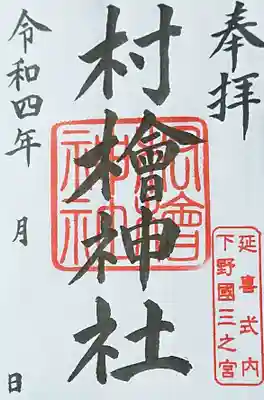 奉拝
延喜式内
下野國三之宮
村檜神社
村檜神社
令和四年 月 日